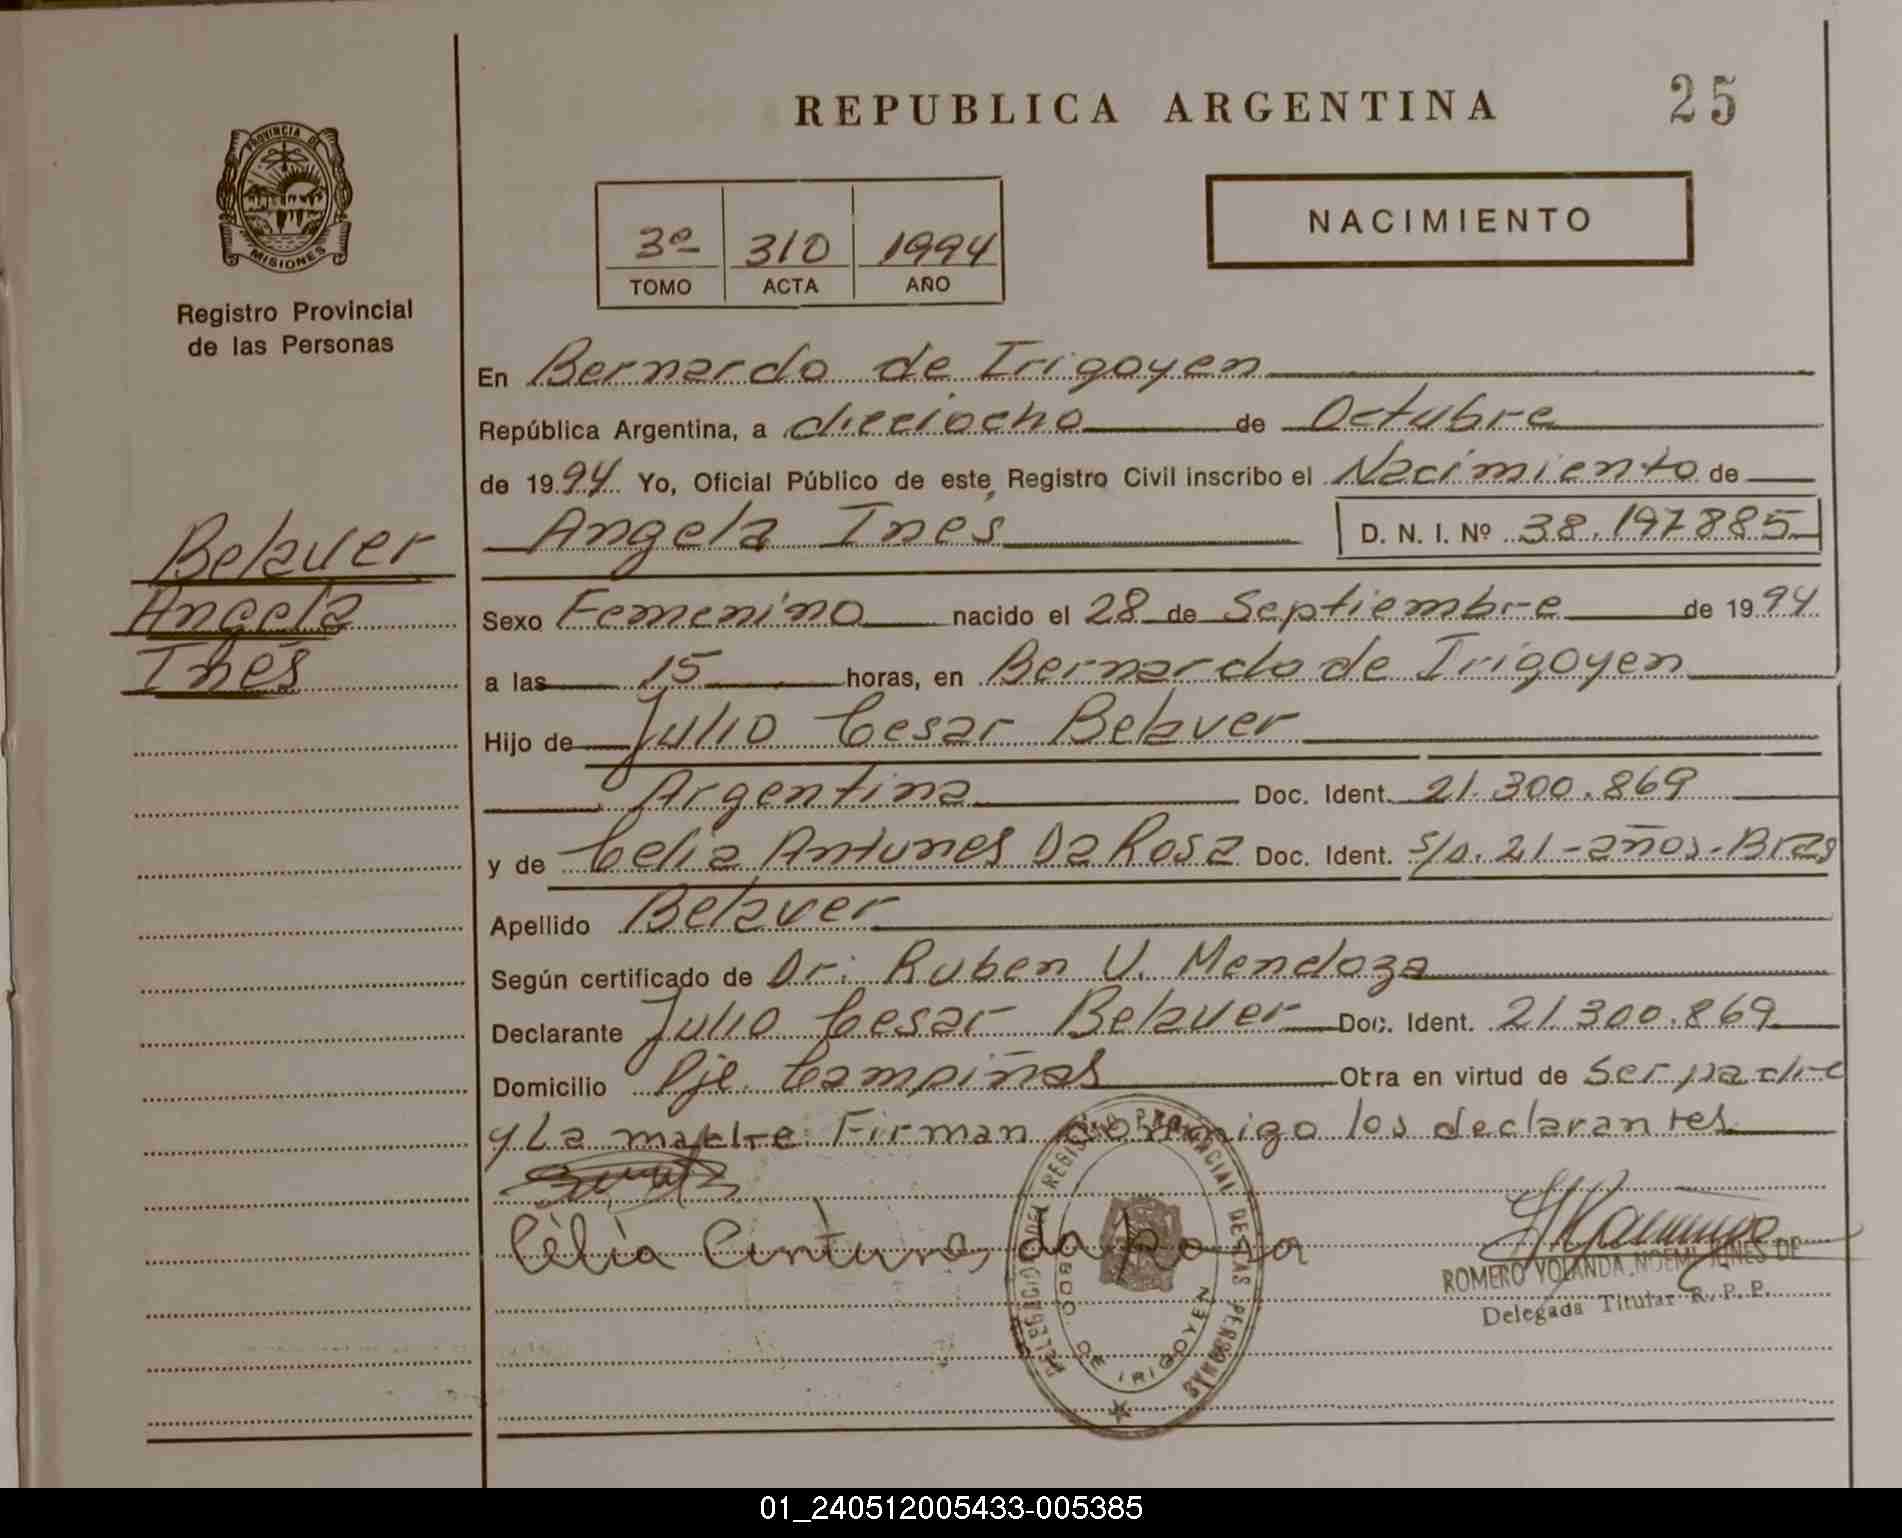 REPUBLICA ARGENTINA
25
PROVINCIA DE
MISIONES
Registro Provincial
de las Personas
3º 310 1994
TOMO ACTA AÑO
NACIMIENTO
En Bernardo de Irigoyen
República Argentina, a dieciocho de Octubre
de 1994 Yo, Oficial Público de este Registro Civil inscribo el Nacimiento de
Angela Inés D. N. I. Nº 38.197885
Belaver
Angela
Inés
Sexo Femenino nacido el 28 de Septiembre de 1994
a las 15 horas, en Bernardo de Irigoyen
Hijo de Julio Cesar Belaver
Argentina Doc. Ident. 21.300.869
y de Celia Antunes Da Rosa Doc. Ident. s/d. 21-años-Bras
Apellido Belaver
Según certificado de Dr: Ruben U. Mendoza
Declarante Julio Cesar Belaver Doc. Ident. 21.300.869
Domicilio Pje. Campiñas Otra en virtud de Ser padre
y La madre Firman conmigo los declarantes
Célia Antunes da Rosa
DELEGACION DEL REGISTRO PROVINCIAL DE LAS PERSONAS
BDO DE IRIGOYEN
ROMERO YOLANDA NOEMI JONES DE
Delegada Titular R. P. P.
01_240512005433-005385